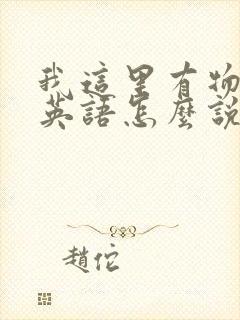 我這里有物
英語怎麼說
趙佗